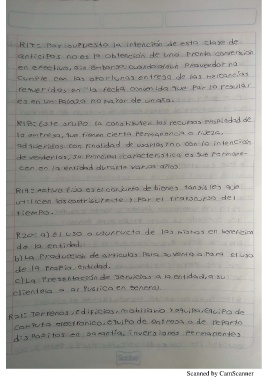 R17= Por supuesto la intención de esta clase de
anticipos no es la obtención de una pronta conversión
en efectivo, sin embargo cuando algun Proveedor no
cumple con las oportunas entrega de las mercancías
requeridas en la fecha convenida que por lo regular
es en un Plazo no mayor de un año.
R18= Este grupo lo constituyen los recursos propiedad de
la empresa, que tienen cierta Permanencia o fijeza,
adquiridos con finalidad de usarlos y no con la intención
de venderlos, su principal característica es que permane-
cen en la entidad durante varios años.
R19= Activo fijo es el conjunto de bienes tangibles que
utilicen los contribuyente y Por el transcurso del
tiempo.
R20= a) el uso o usufructo de las mismos en beneficio
de la entidad.
b) La Producción de artículos Para su venta o para el uso
de la Propia entidad.
c) La Presentación de servicios a la entidad, a su
clientela o al Publico en general.
R21= Terrenos, Edificios, Mobiliario y equipo, Equipo de
computo electronico, equipo de entrega o de reparto
depositos en garantía, inversiones permanentes
Scribe
Scanned by CamScanner